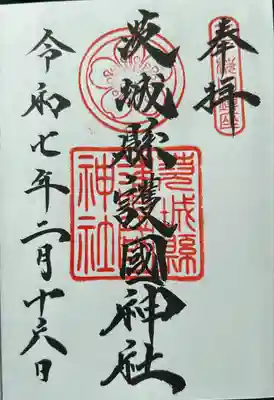 奉拝
茨城縣護國神社
茨城縣
護國
神社
令和七年二月十六日